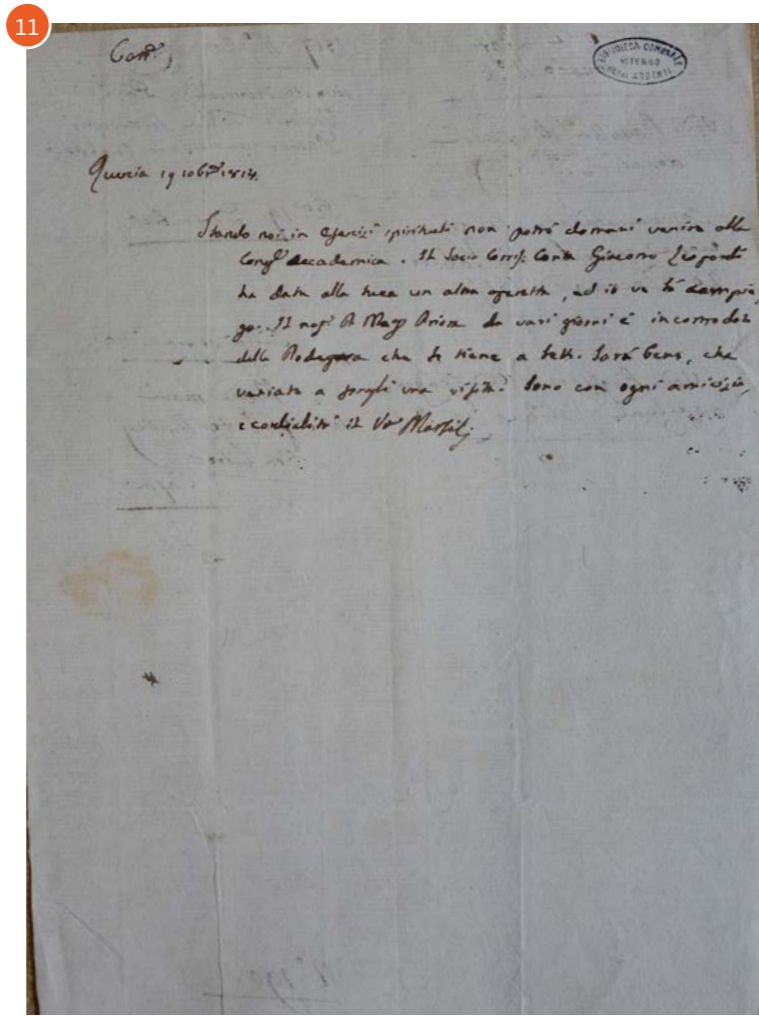 11
BIBLIOTECA COMUNALE
VITERBO
DEGLI ARDENTI
Quercia 19 10bre 1817.
Stando noi in esercizi spirituali non potrò domani venire alla
Congne accademica. Il Socio Corrisp. Conte Giacomo Leopardi
ha data alla luce un altra operetta, ed io ve la
Il nostro P. Magro da vari giorni è incomodato
dalla Podagra che lo tiene a letto. Sarà bene, che
veniate a fargli una visita. Sono con ogni amicizia,
e cordialità il Vo Marsilj